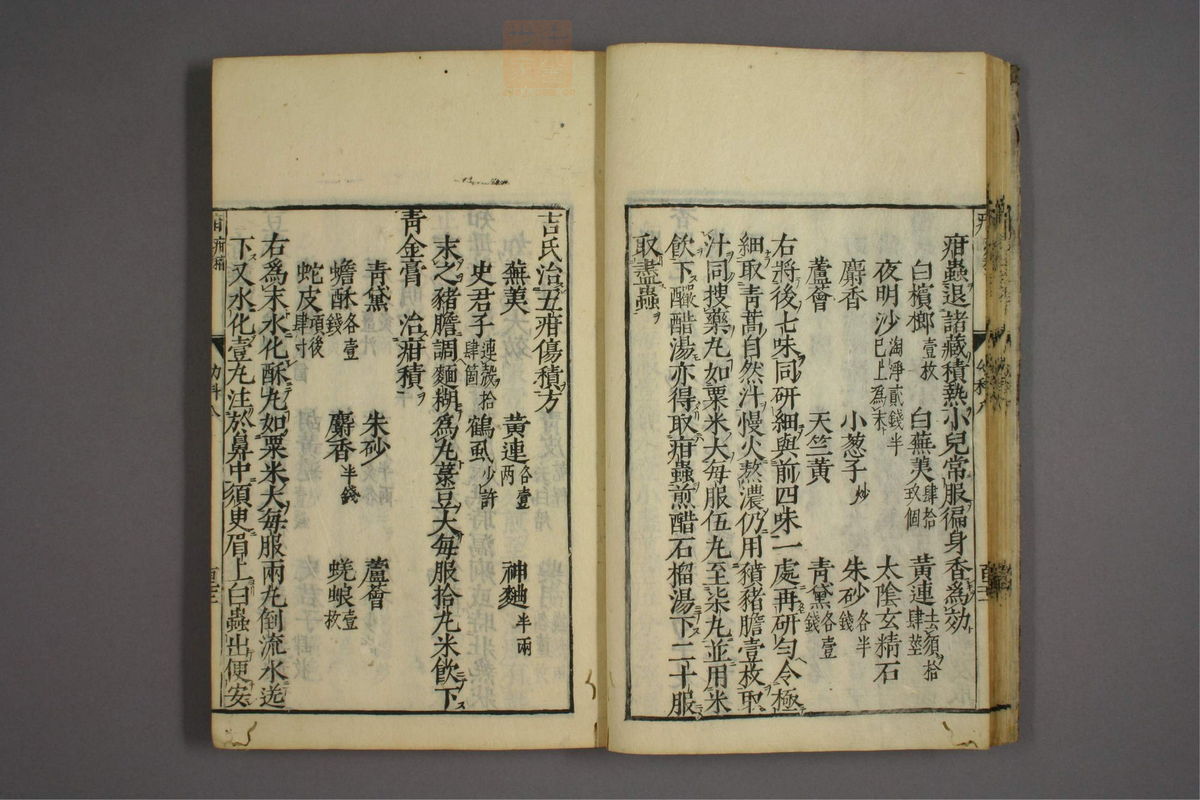 疳蟲退諸藏積熱小兒常服徧身香為効
白檳榔壹枚　白蕪荑肆拾玖個　黃連去須拾肆莖
夜明沙淘淨貳錢半已上為末　太陰玄精石
麝香　小葱子炒　朱砂各半錢
蘆薈　天竺黃　青黛各壹錢
右將後七味同研細與前四味一處再研勻令極
細取青蒿自然汁慢火熬濃仍用豶豬膽壹枚取
汁同搜藥丸如粟米大每服伍丸至柒丸並用米
飲下嚥醋湯亦得取疳蟲煎醋石榴湯下二十服
取盡蟲
吉氏治五疳傷積方
蕪荑　黃連各壹兩　神麯半兩
史君子連殼拾肆箇　鶴虱少許
末之豬膽調麵糊為丸菉豆大每服拾丸米飲下
青金膏　治疳積
青黛　朱砂　蘆薈
蟾酥各壹錢　麝香半錢　蜣蜋壹枚
蛇皮項後肆寸
右為末水化酥丸如粟米大每服兩丸倒流水送
下又水化壹丸注於鼻中須臾眉上白蟲出便安